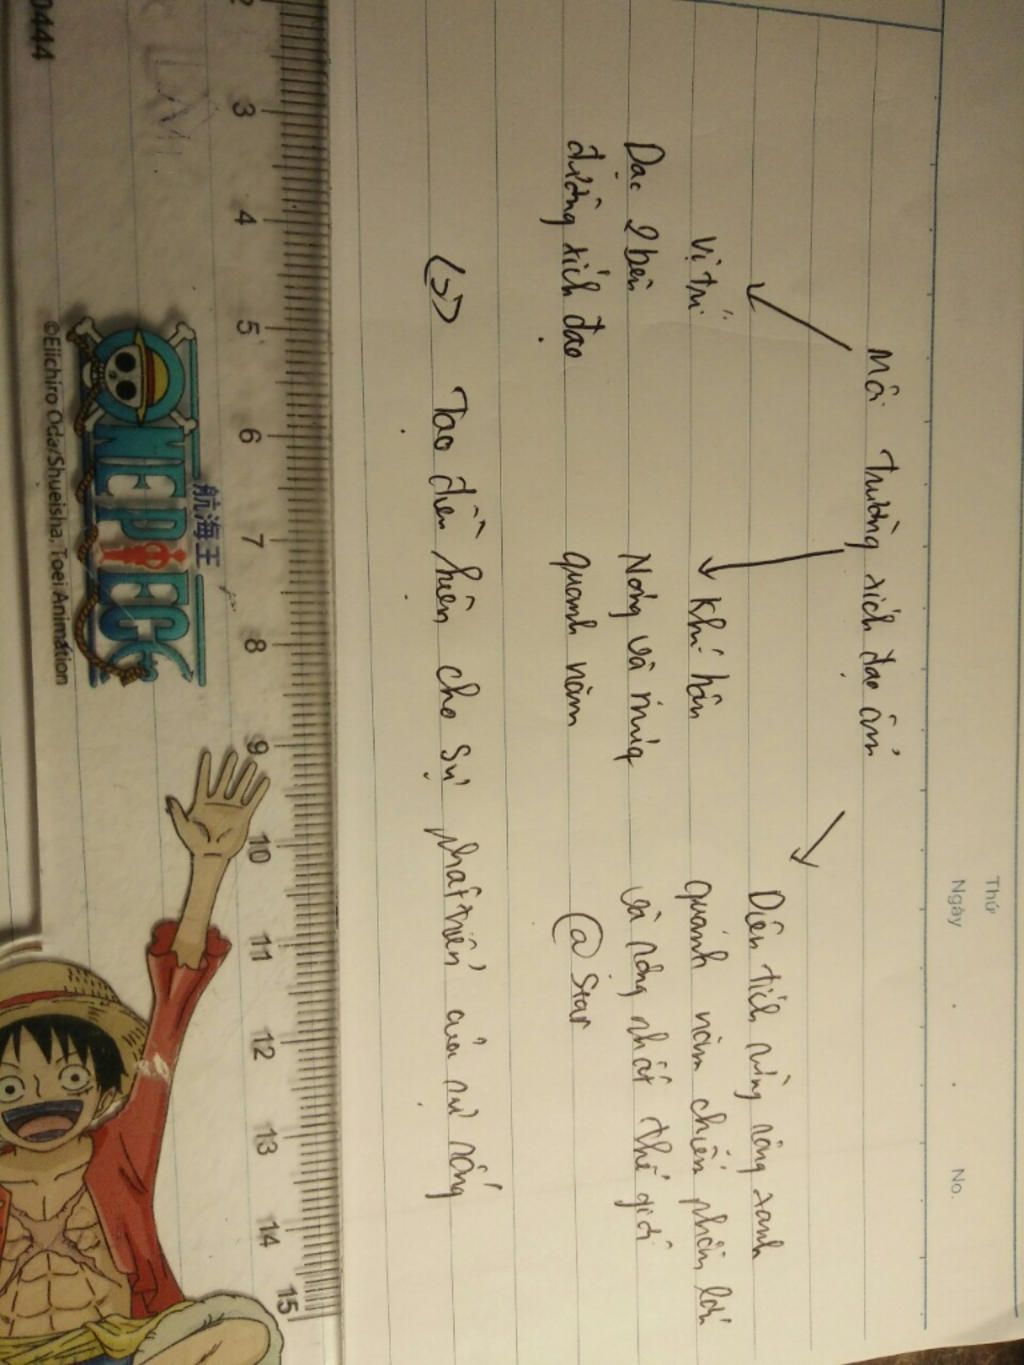 Thứ
Ngày . . No.
Môi trường xích đạo ẩm
Vị trí
Dọc 2 bên
đường xích đạo
Khí hậu
Nóng và
quanh năm
Diện tích rừng rộng xanh
quanh năm chiếm phần lớn
và rộng nhất thế giới
@Star
(=>) Tạo điền kiện cho sự phát triển của sự sống
2 3 4 5 6 7 8 9 10 11 12 13 14 15
航海王
ONE PIECE
©Eiichiro Oda/Shueisha, Toei Animation
0444